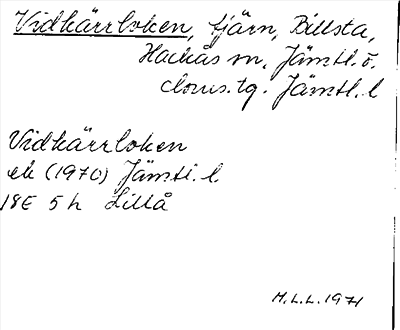 Vidkärrloken, tjärn, Billsta,
Hackås sn, Jämtl. ö.
doms.tg. Jämtl. l
Vidkärrloken
ek (1970) Jämtl. l.
18E 5h Lillå
M.L.L. 1971